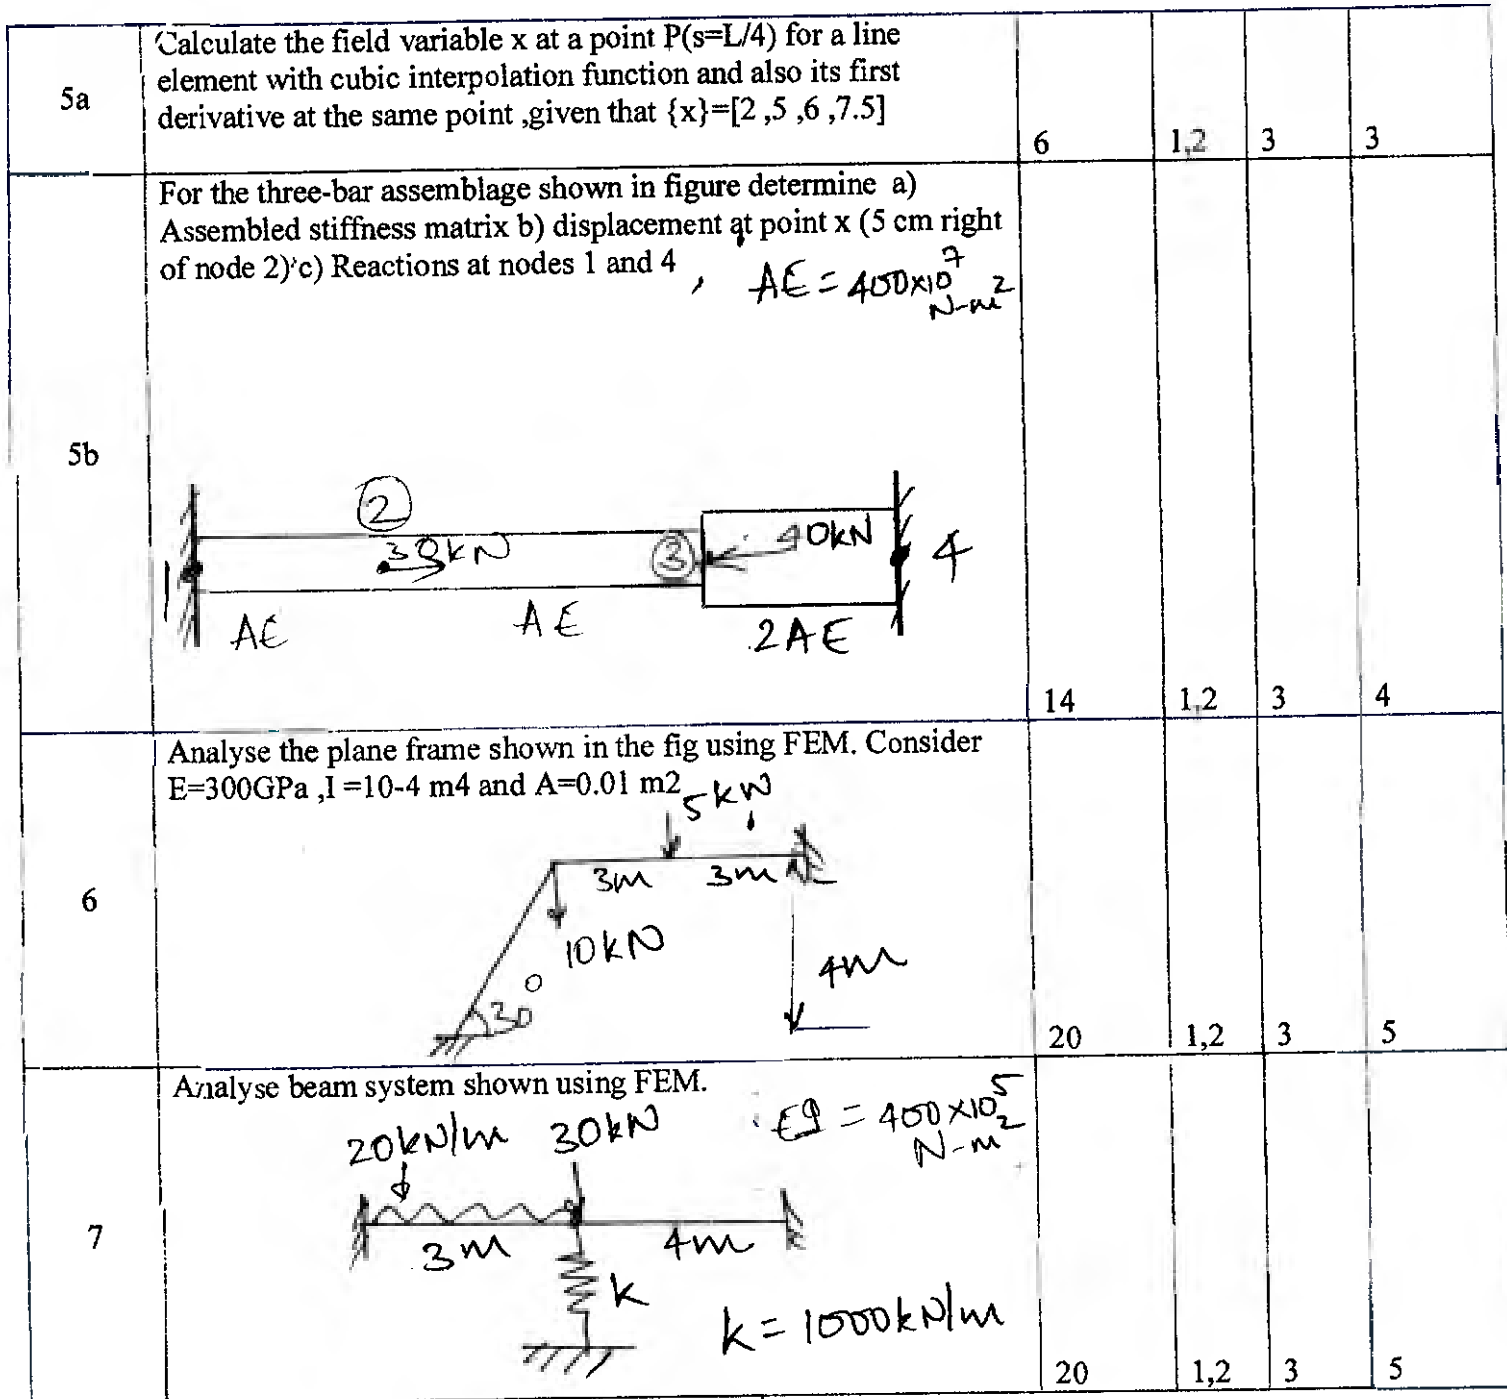 5a
Calculate the field variable x at a point P(s=L/4) for a line
element with cubic interpolation function and also its first
derivative at the same point ,given that {x}=[2 ,5 ,6 ,7.5]
6 1,2 3 3
5b
For the three-bar assemblage shown in figure determine a)
Assembled stiffness matrix b) displacement at point x (5 cm right
of node 2) c) Reactions at nodes 1 and 4 , AE = 400×10^7 N-m^2
2
1 30kN 3 40kN 4
AE AE 2AE
14 1,2 3 4
6
Analyse the plane frame shown in the fig using FEM. Consider
E=300GPa ,I =10-4 m4 and A=0.01 m2
5kN
3m 3m
10kN
4m
30°
20 1,2 3 5
7
Analyse beam system shown using FEM.
20kN/m 30kN EI = 400×10^5 N-m^2
3m 4m
k
k = 1000kN/m
20 1,2 3 5